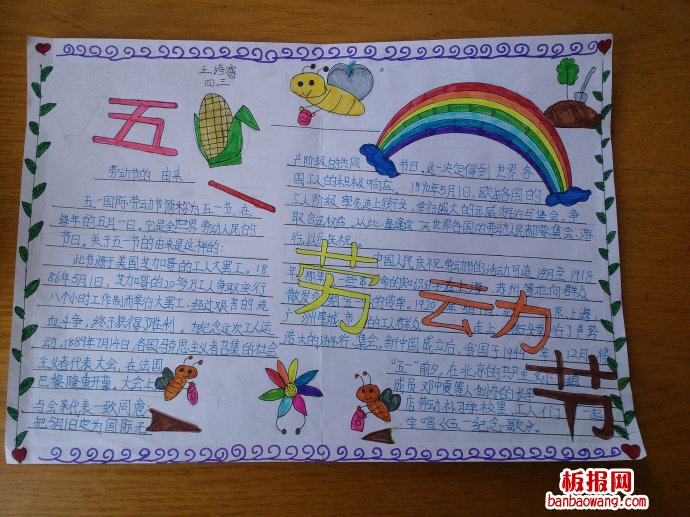 王海蕾
四三
五
一
劳动节的 由来
五一国际劳动节简称为五一节,在
每年的五月一日。它是全世界劳动人民的
节日。关于五一节的由来是这样的:
此节源于美国芝加哥的工人大罢工。18
86年5月1日,芝加哥的20多万工人争取实行
八个小时工作制而举行大罢工,经过艰苦的流
血斗争,终于获得了胜利。为纪念这次工人运
动,1889年7月14日,各国马克思主义者召集的社会
主义者代表大会,在法国
巴黎隆重开幕,大会上
与会表代表一致同意
把5月1日定为国际无
产阶级的共同 节日,这一决定得到世界各
国工人的积极响应。1890年5月1日,欧美各国的
工人阶级率先走上街头,举行盛大的示威游行与集会,争
取合法权益,从此,每逢这天世界各国的劳动人民都要集会、游
行,以示庆祝
中国人民庆祝劳动节的活动可追溯至1918
年 命的知识 上海、苏州 等地向群众
散发 的传单。1920年5月1日 上海
广州 的工人群众 走上街头举行了声势
浩大的游行、集会。新中国成立后,我国于1949年12月将
"五一"前夕,在北京的共产主义小组
成员邓中夏等人创办的长辛
店劳动补习学校里,工人们 一起
学唱《五一纪念歌》。
劳动节
板报网
banbaowang.com